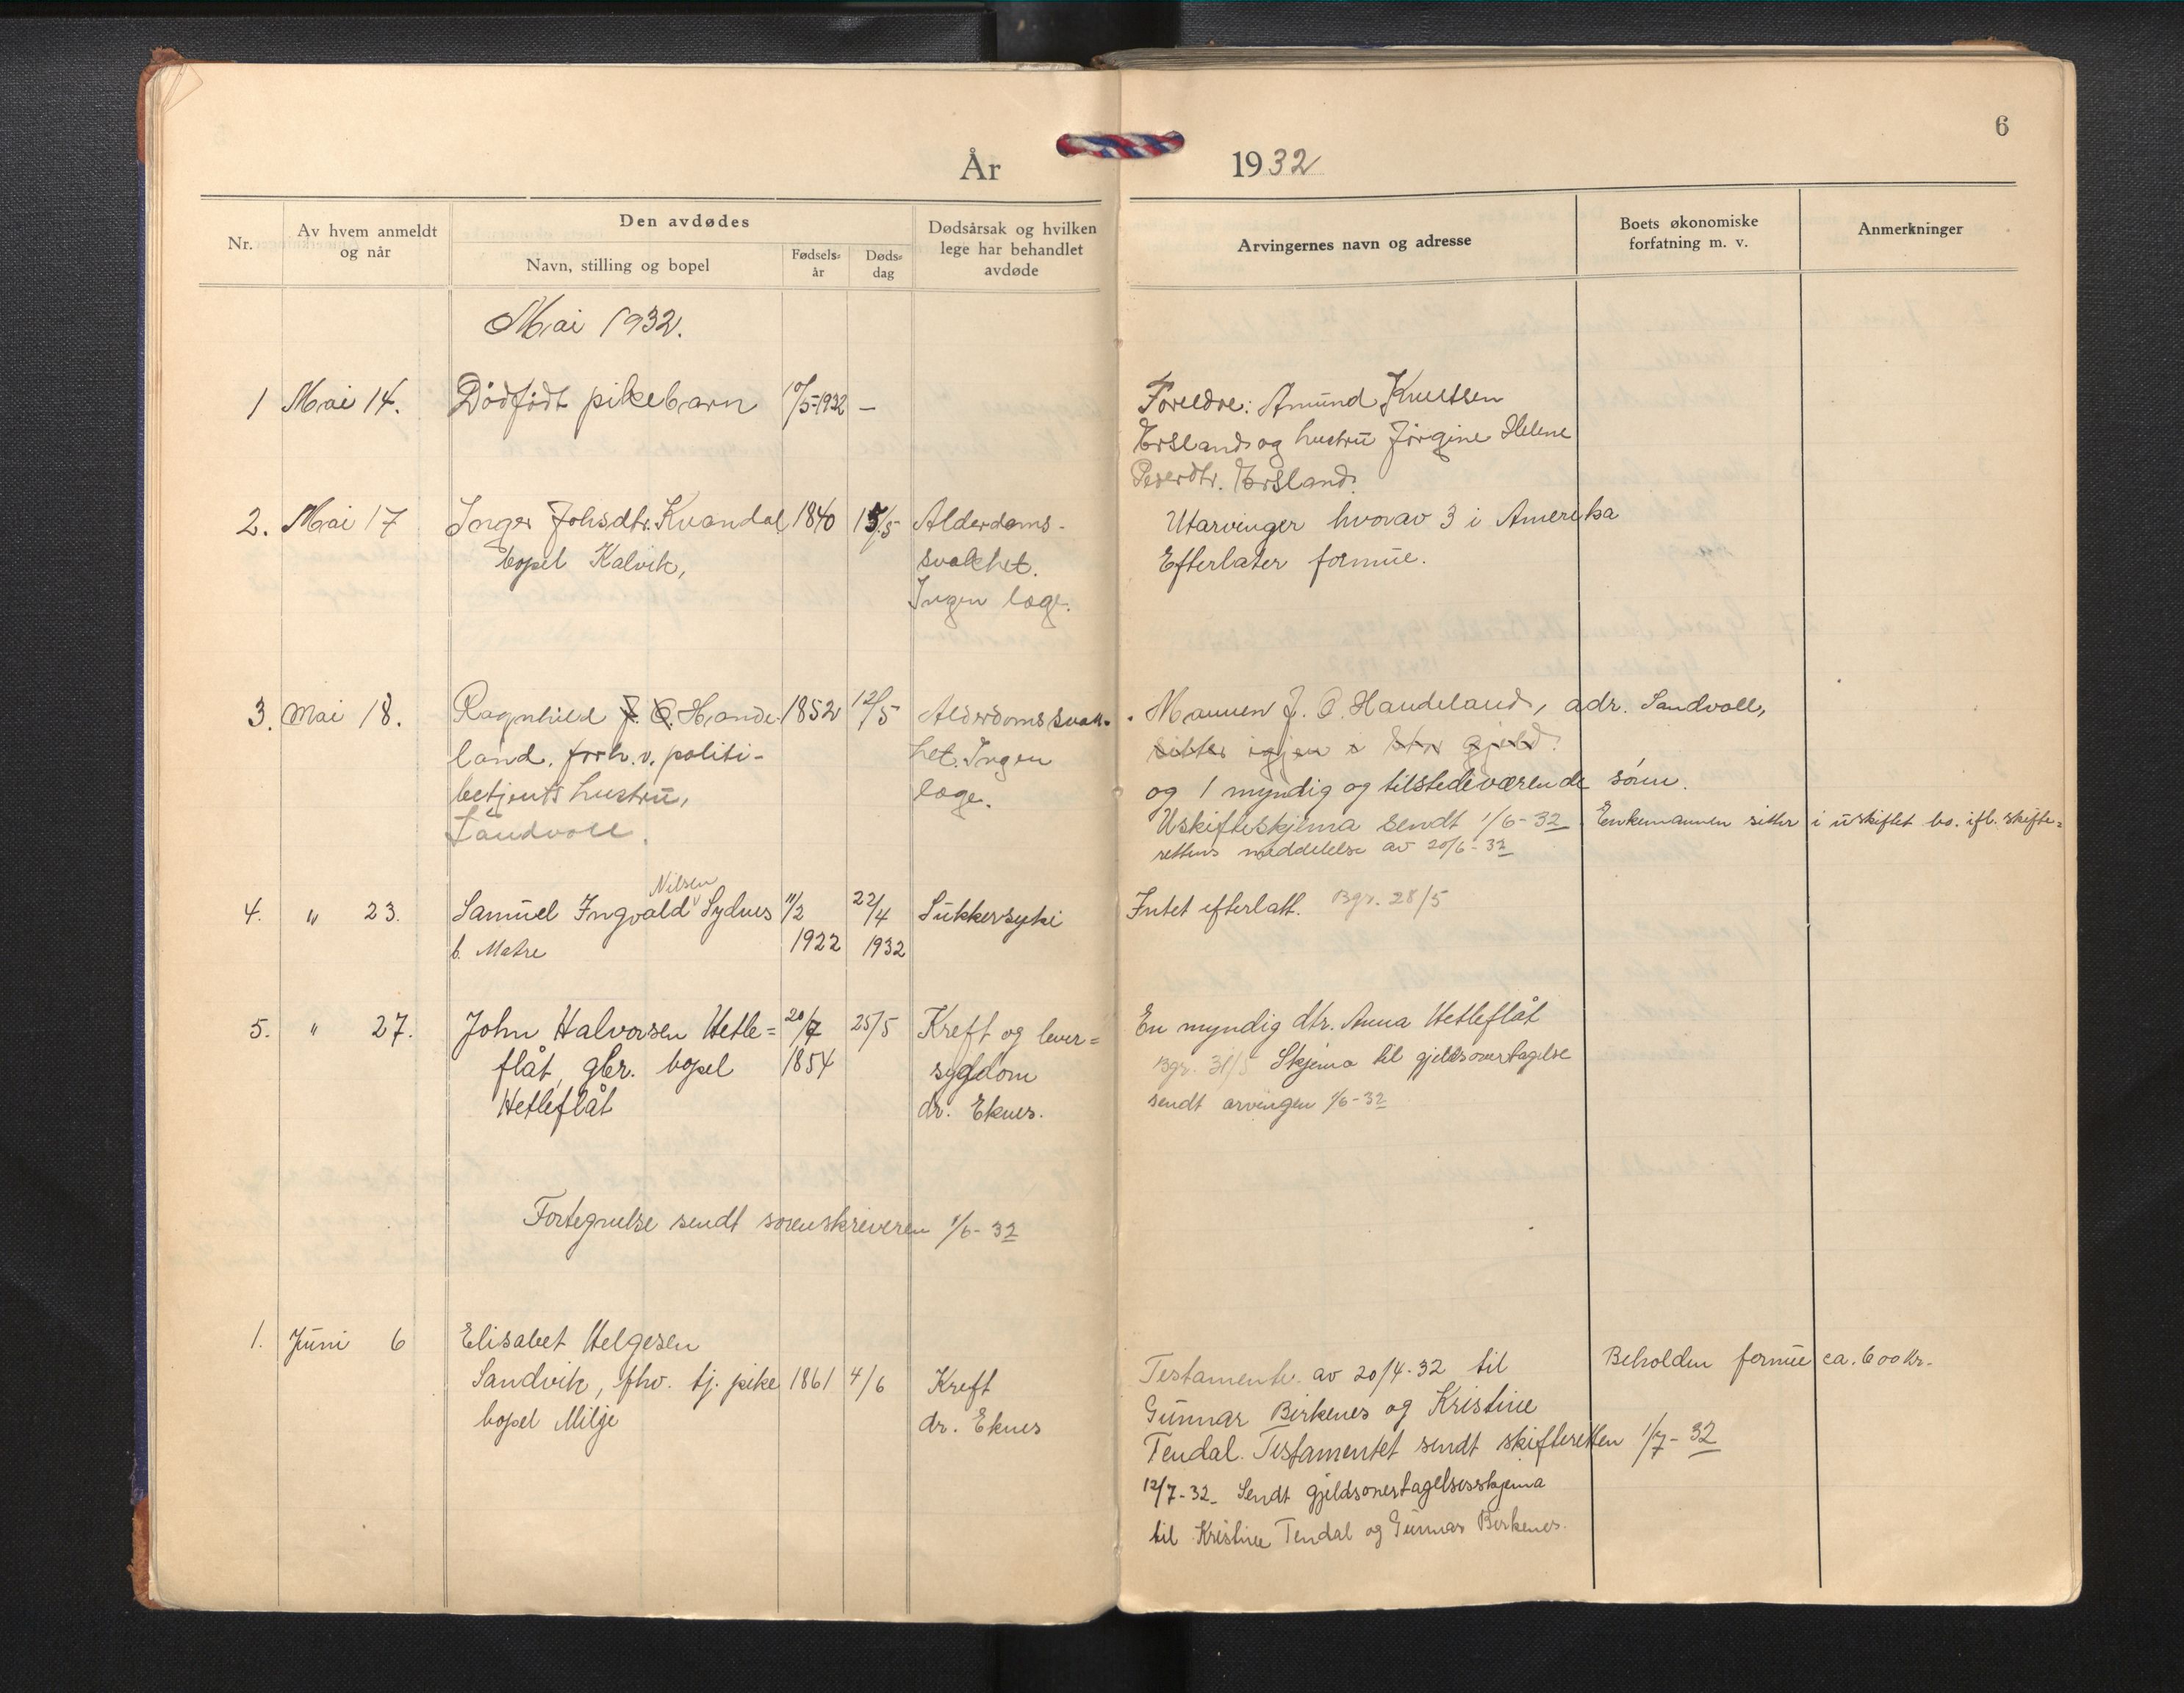 6
År 1932
Nr.
Av hvem anmeldt og når
Den avdødes
Navn, stilling og bopel
Fødselsår
Dødsdag
Dødsårsak og hvilken lege har behandlet avdøde
Arvingernes navn og adresse
Boets økonomiske forfatning m. v.
Anmerkninger
Mai 1932.
1 Mai 14. Dødfødt pikebarn 10/5-1932 —
Foreldre: Amund Knutsen
Ersland og hustru Jørgine Helene
Pederdtr. Ersland.
2. Mai 17 Inger Johsdtr. Kvandal 1840 15/5 Alderdoms-
bopel Kalvik, svakhet.
Ingen læge.
Utarvinger hvorav 3 i Amerika
Efterlater formue.
3. Mai 18. Ragnhild J. O. Hande- 1852 12/5 Alderdomssvak-
land, forh. v. politi- het. Ingen
betjents hustru, læge.
Sandvoll.
Mannen J. O. Handeland, adr. Sandvoll,
sitter igjen i stor gjeld.
og 1 myndig og tilstedeværende sønn.
Uskifteskjema sendt 1/6-32 Enkemannen sitter i uskiftet bo. ifl. skifte=
rettens meddelelse av 20/6-32
Nilsen
4. " 23. Samuel Ingvald Sydnes 11/2 22/4 Sukkersyke
b. Matre 1922 1932
Intet efterlatt. Bgr. 28/5
5. " 27. John Halvorsen Hetle= 20/7 25/5 Kreft og lever=
flåt, gbr. bopel 1854 sygdom
Hetleflåt dr. Eknes.
En myndig dtr. Anna Hetleflåt
Bgr. 31/5 Skjema til gjeldsovertagelse
sendt arvingen 1/6-32
Fortegnelse sendt sorenskriveren 1/6-32
1. Juni 6 Elisabet Helgesen
Sandvik, fhv. tj. pike 1861 4/6 Kreft
bopel Milje dr. Eknes
Testamente av 20/4-32 til
Gunnar Birkenes og Kristine
Tendal. Testamentet sendt skifteretten 1/7-32
12/7-32. Sendt gjeldsovertagelsesskjema
til Kristine Tendal og Gunnar Birkenes.
Beholden formue ca. 600 kr.